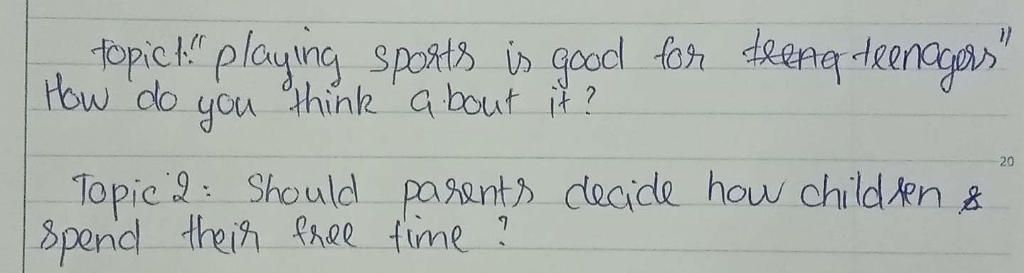 Topic 1: "playing sports is good for teenagers"
How do you think about it?
20
Topic 2: Should parents decide how children
spend their free time?